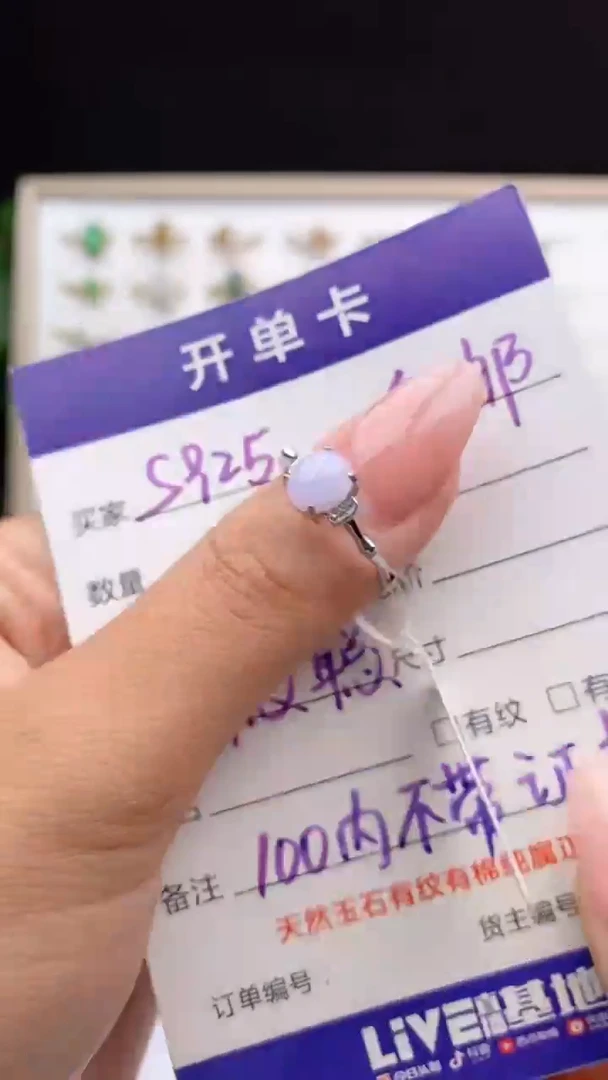 开单卡
买家 S925 邮
数量
价
尺寸
有纹 有
备注 100内不带证
天然玉石有纹有棉纯属正
货主编号
订单编号
LiVE 基地